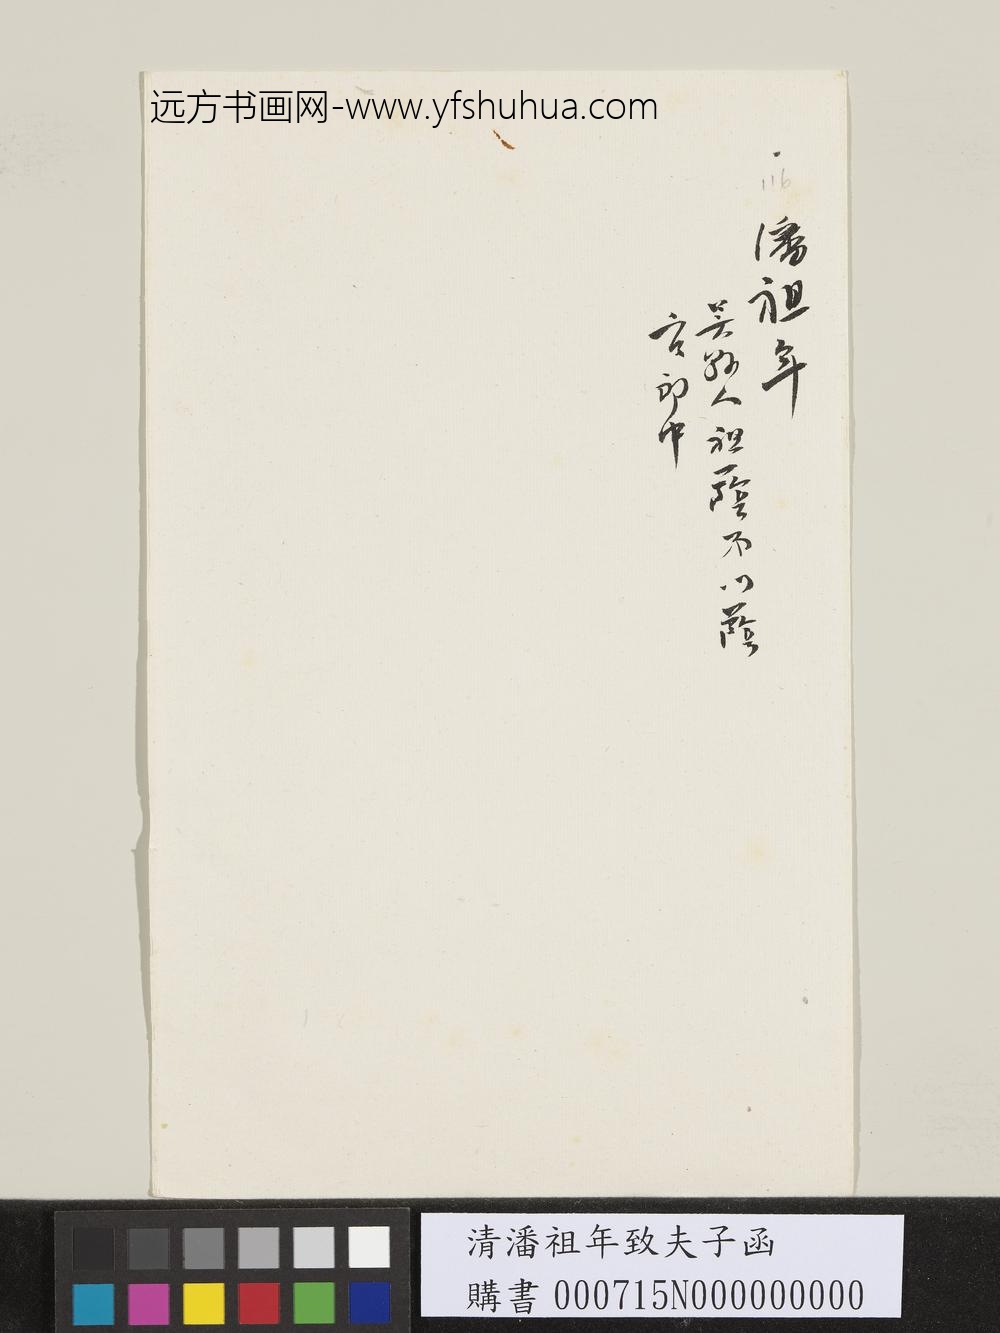 远方书画网-www.yfshuhua.com
116
潘祖年
吴縣人祖蔭弟以蔭
官郎中
清潘祖年致夫子函
購書000715N000000000